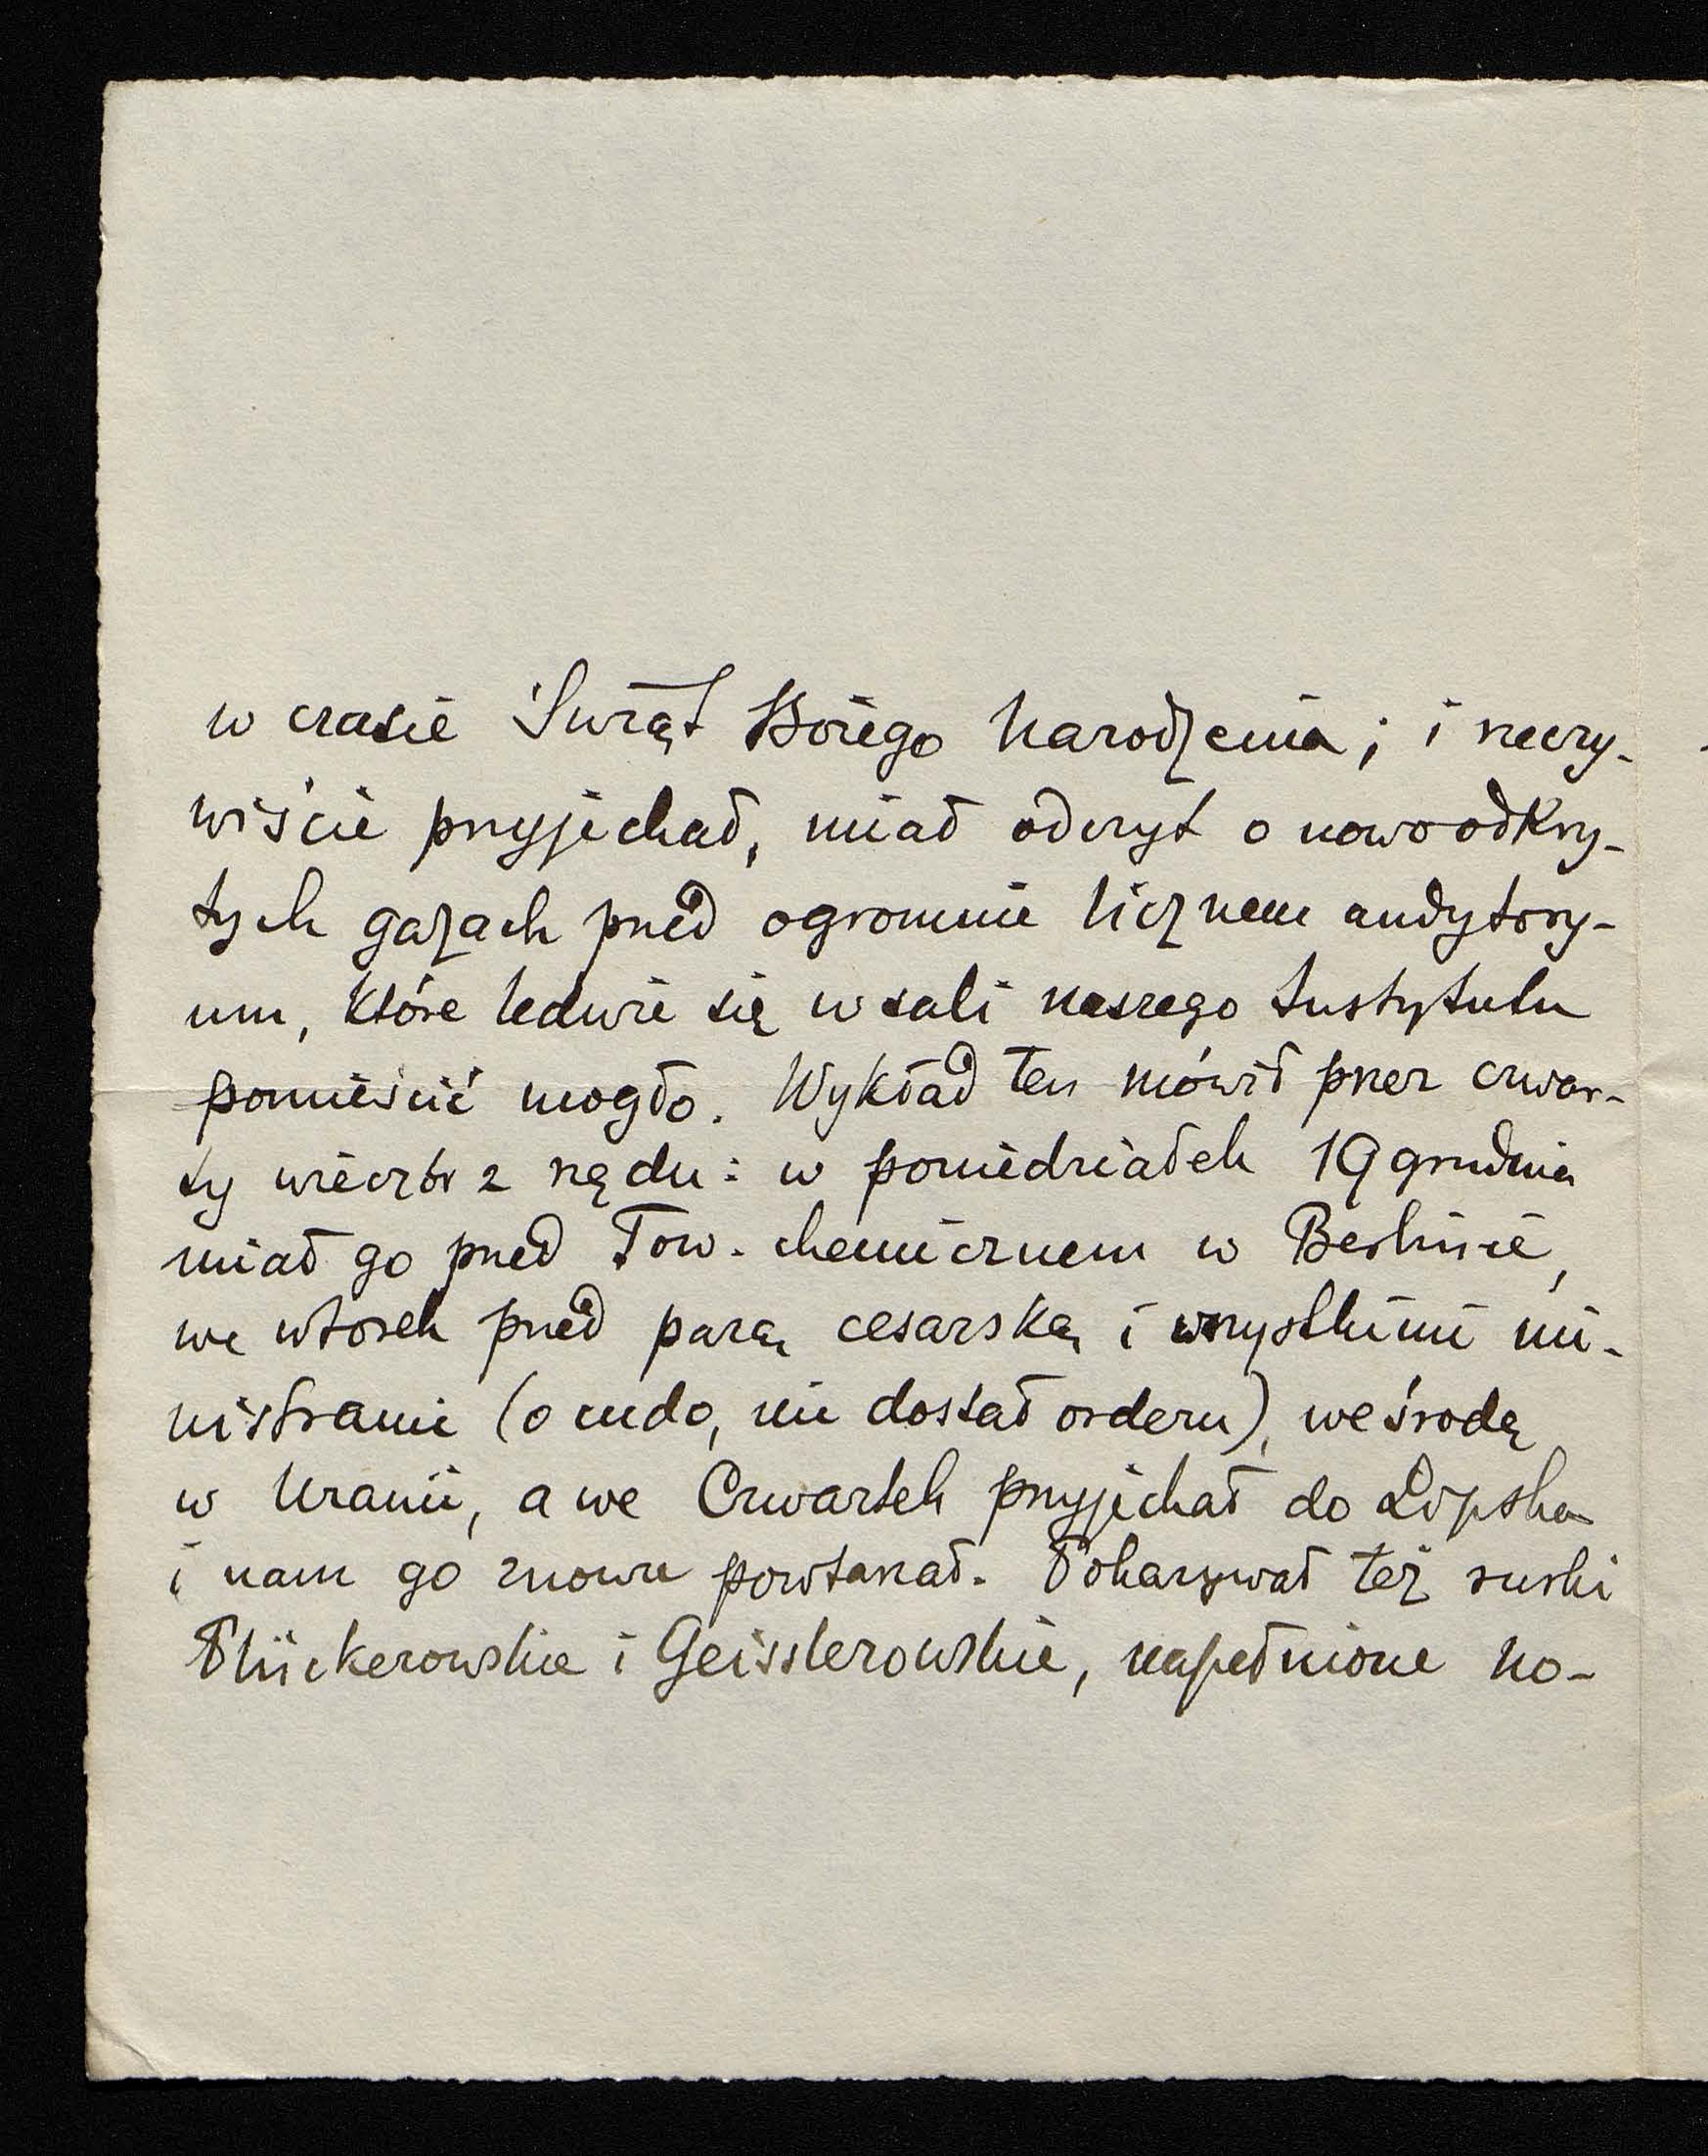 w czasie Świąt Bożego Narodzenia; i rzeczy-
wiście przyjechał, miał odczyt o nowoodkry-
tych gazach przed ogromnie licznem audytory-
um, które ledwie się w sali naszego Instytutu
pomieścić mogło. Wykład ten mówił przez czwar-
ty wieczór z rzędu: w poniedziałek 19 grudnia
miał go przed Tow. chemicznem w Berlinie,
we wtorek przed parą cesarską i wszystkimi mi-
nistrami (o cudo, nie dostał orderu), we środę
w Uranii, a we Czwartek przyjechał do Lipska
i nam go znowu powtarzał. Pokazywał też rurki
Plückerowskie i Geisslerowskie, napełnione no-